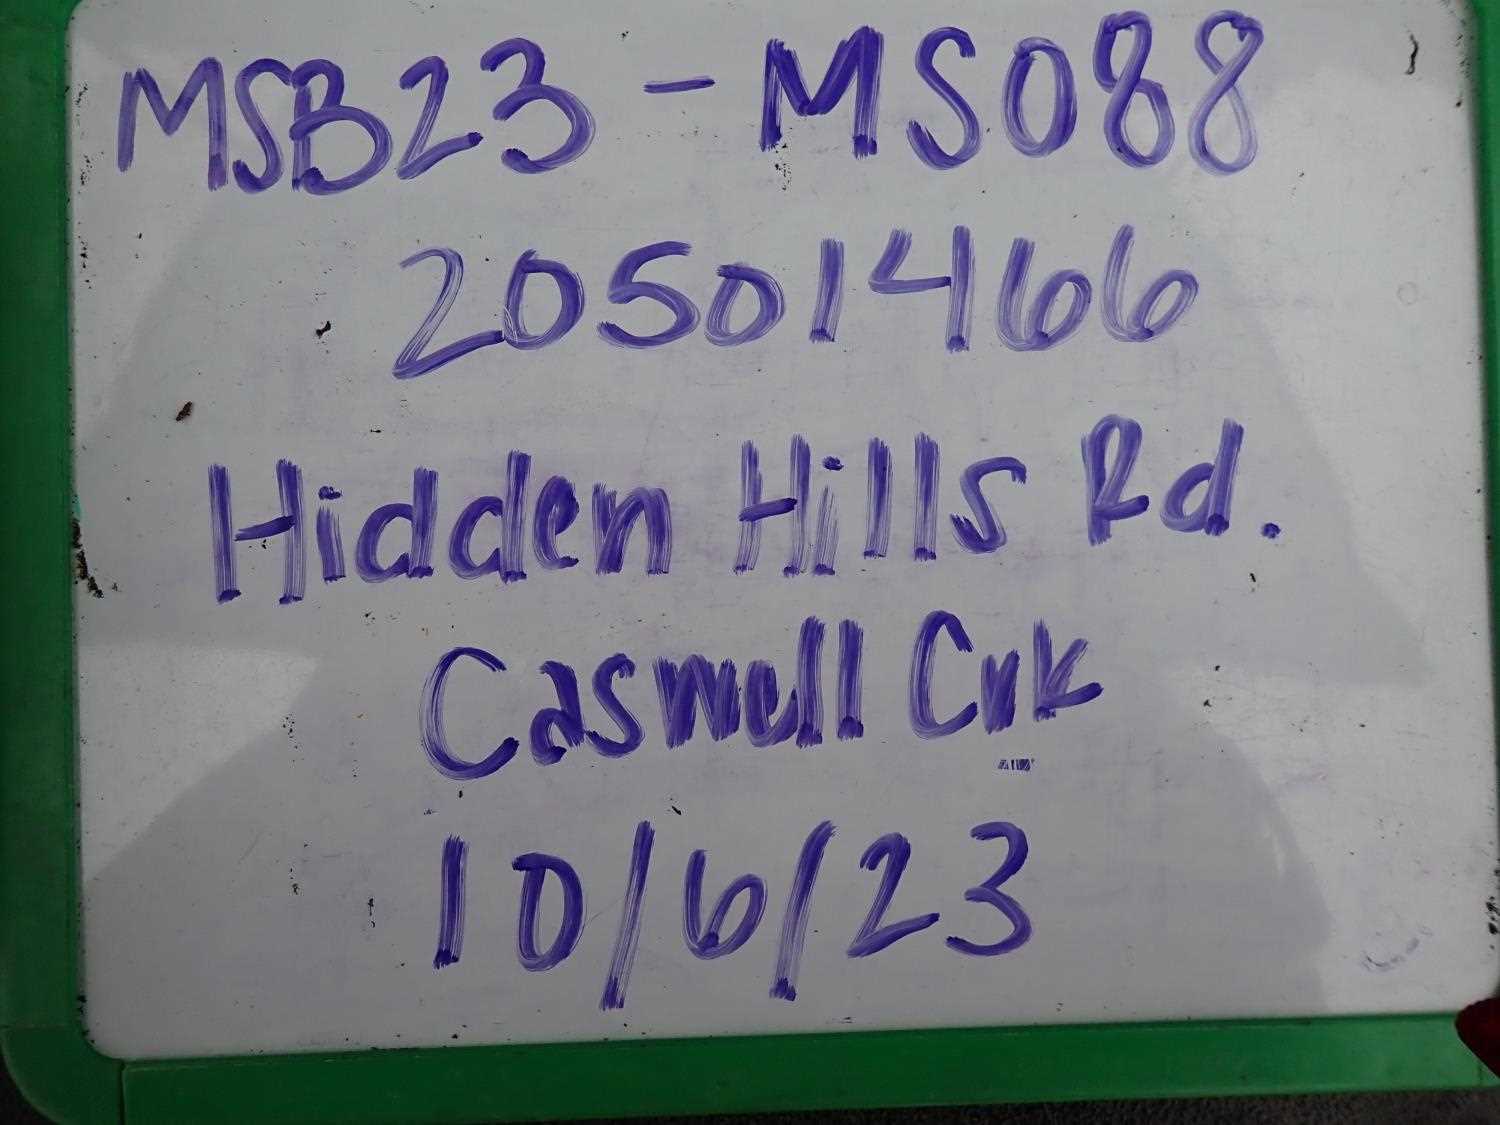 MSB23 - MS088
20501466
Hidden Hills Rd.
Caswell Crk
10/6/23